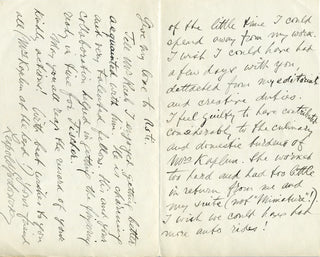 of the little time I could
spend away from my work.
I wish I could have had
a few days with you,
dettached from my editorial
and creative duties.
I feel guilty to have contributed
considerably to the culinary
and domestic burdens of
Mrs Kaplan. She worked
too hard and had too little
in return from me and
my suite (not "Miniature"!)
I wish we could have had
more auto rides!
Tell Mr. I enjoyed getting better
acquainted with him. He is a charming
and very talented fellow. His and your
collaboration helped in getting the fingering
ready in time for Fischer.
May you all reap the reward of your
kind actions. With best wishes to you
all (Mrs Kaplan at the head) Your friend
Give my love to